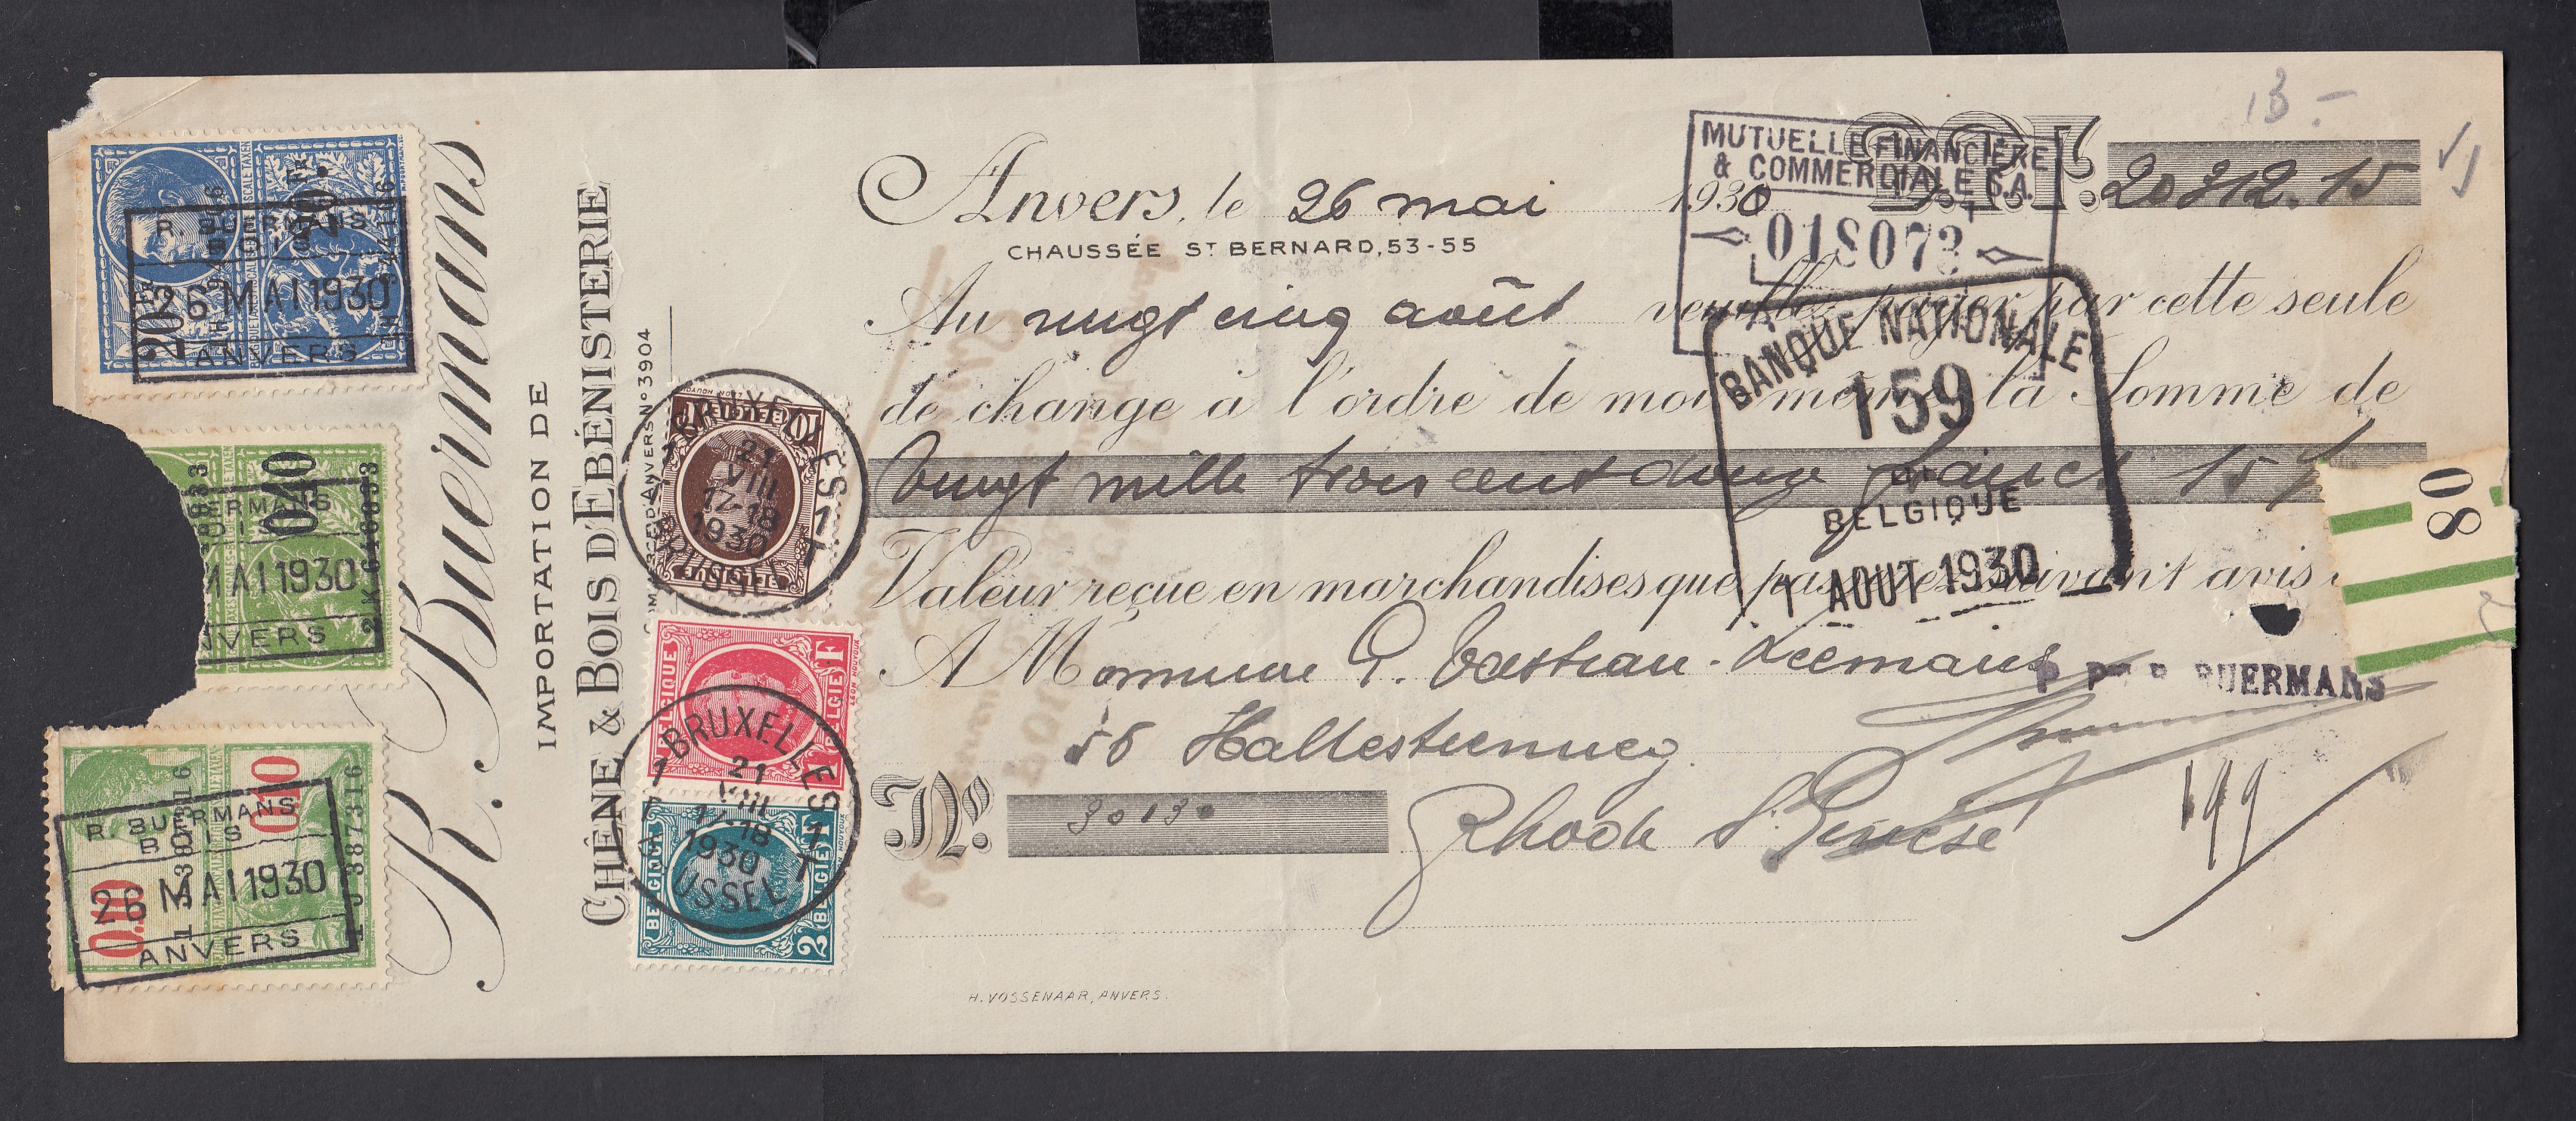 R. Buermans
IMPORTATION DE
CHÊNE & BOIS D'ÉBÉNISTERIE
D'ANVERS No 3904
Anvers, le 26 mai 1930
CHAUSSÉE ST BERNARD, 53-55
20312.15
Au vingt cinq août veuillez payer par cette seule
de change à l'ordre de moi-même la Somme de
Vingt mille trois cent douze francs 15
Valeur reçue en marchandises que passerez suivant avis
A Monsieur
Rhode St Genèse
No. 30130
H. VOSSENAAR, ANVERS.
MUTUELLE FINANCIÈRE
& COMMERCIALE S.A.
BANQUE NATIONALE
159
DE
BELGIQUE
AOUT 1930
R. BUERMANS
199
13-
80
R. BUERMANS
BOIS
26 MAI 1930
ANVERS
20
ERMANS
OIS
MAI 1930
NVERS
0.40
2K616833
R. BUERMANS
BOIS
26 MAI 1930
ANVERS
0.10
0.10
1J3387316
BRUXELLES 1
21
VIII
17-18
1930
BRUSSEL 1
BELGIQUE
BELGIË
10
BRUXELLES 1
21
VIII
17-18
1930
BRUSSEL 1
BELGIQUE
BELGIË
1F
BELGIQUE
BELGIË
2F